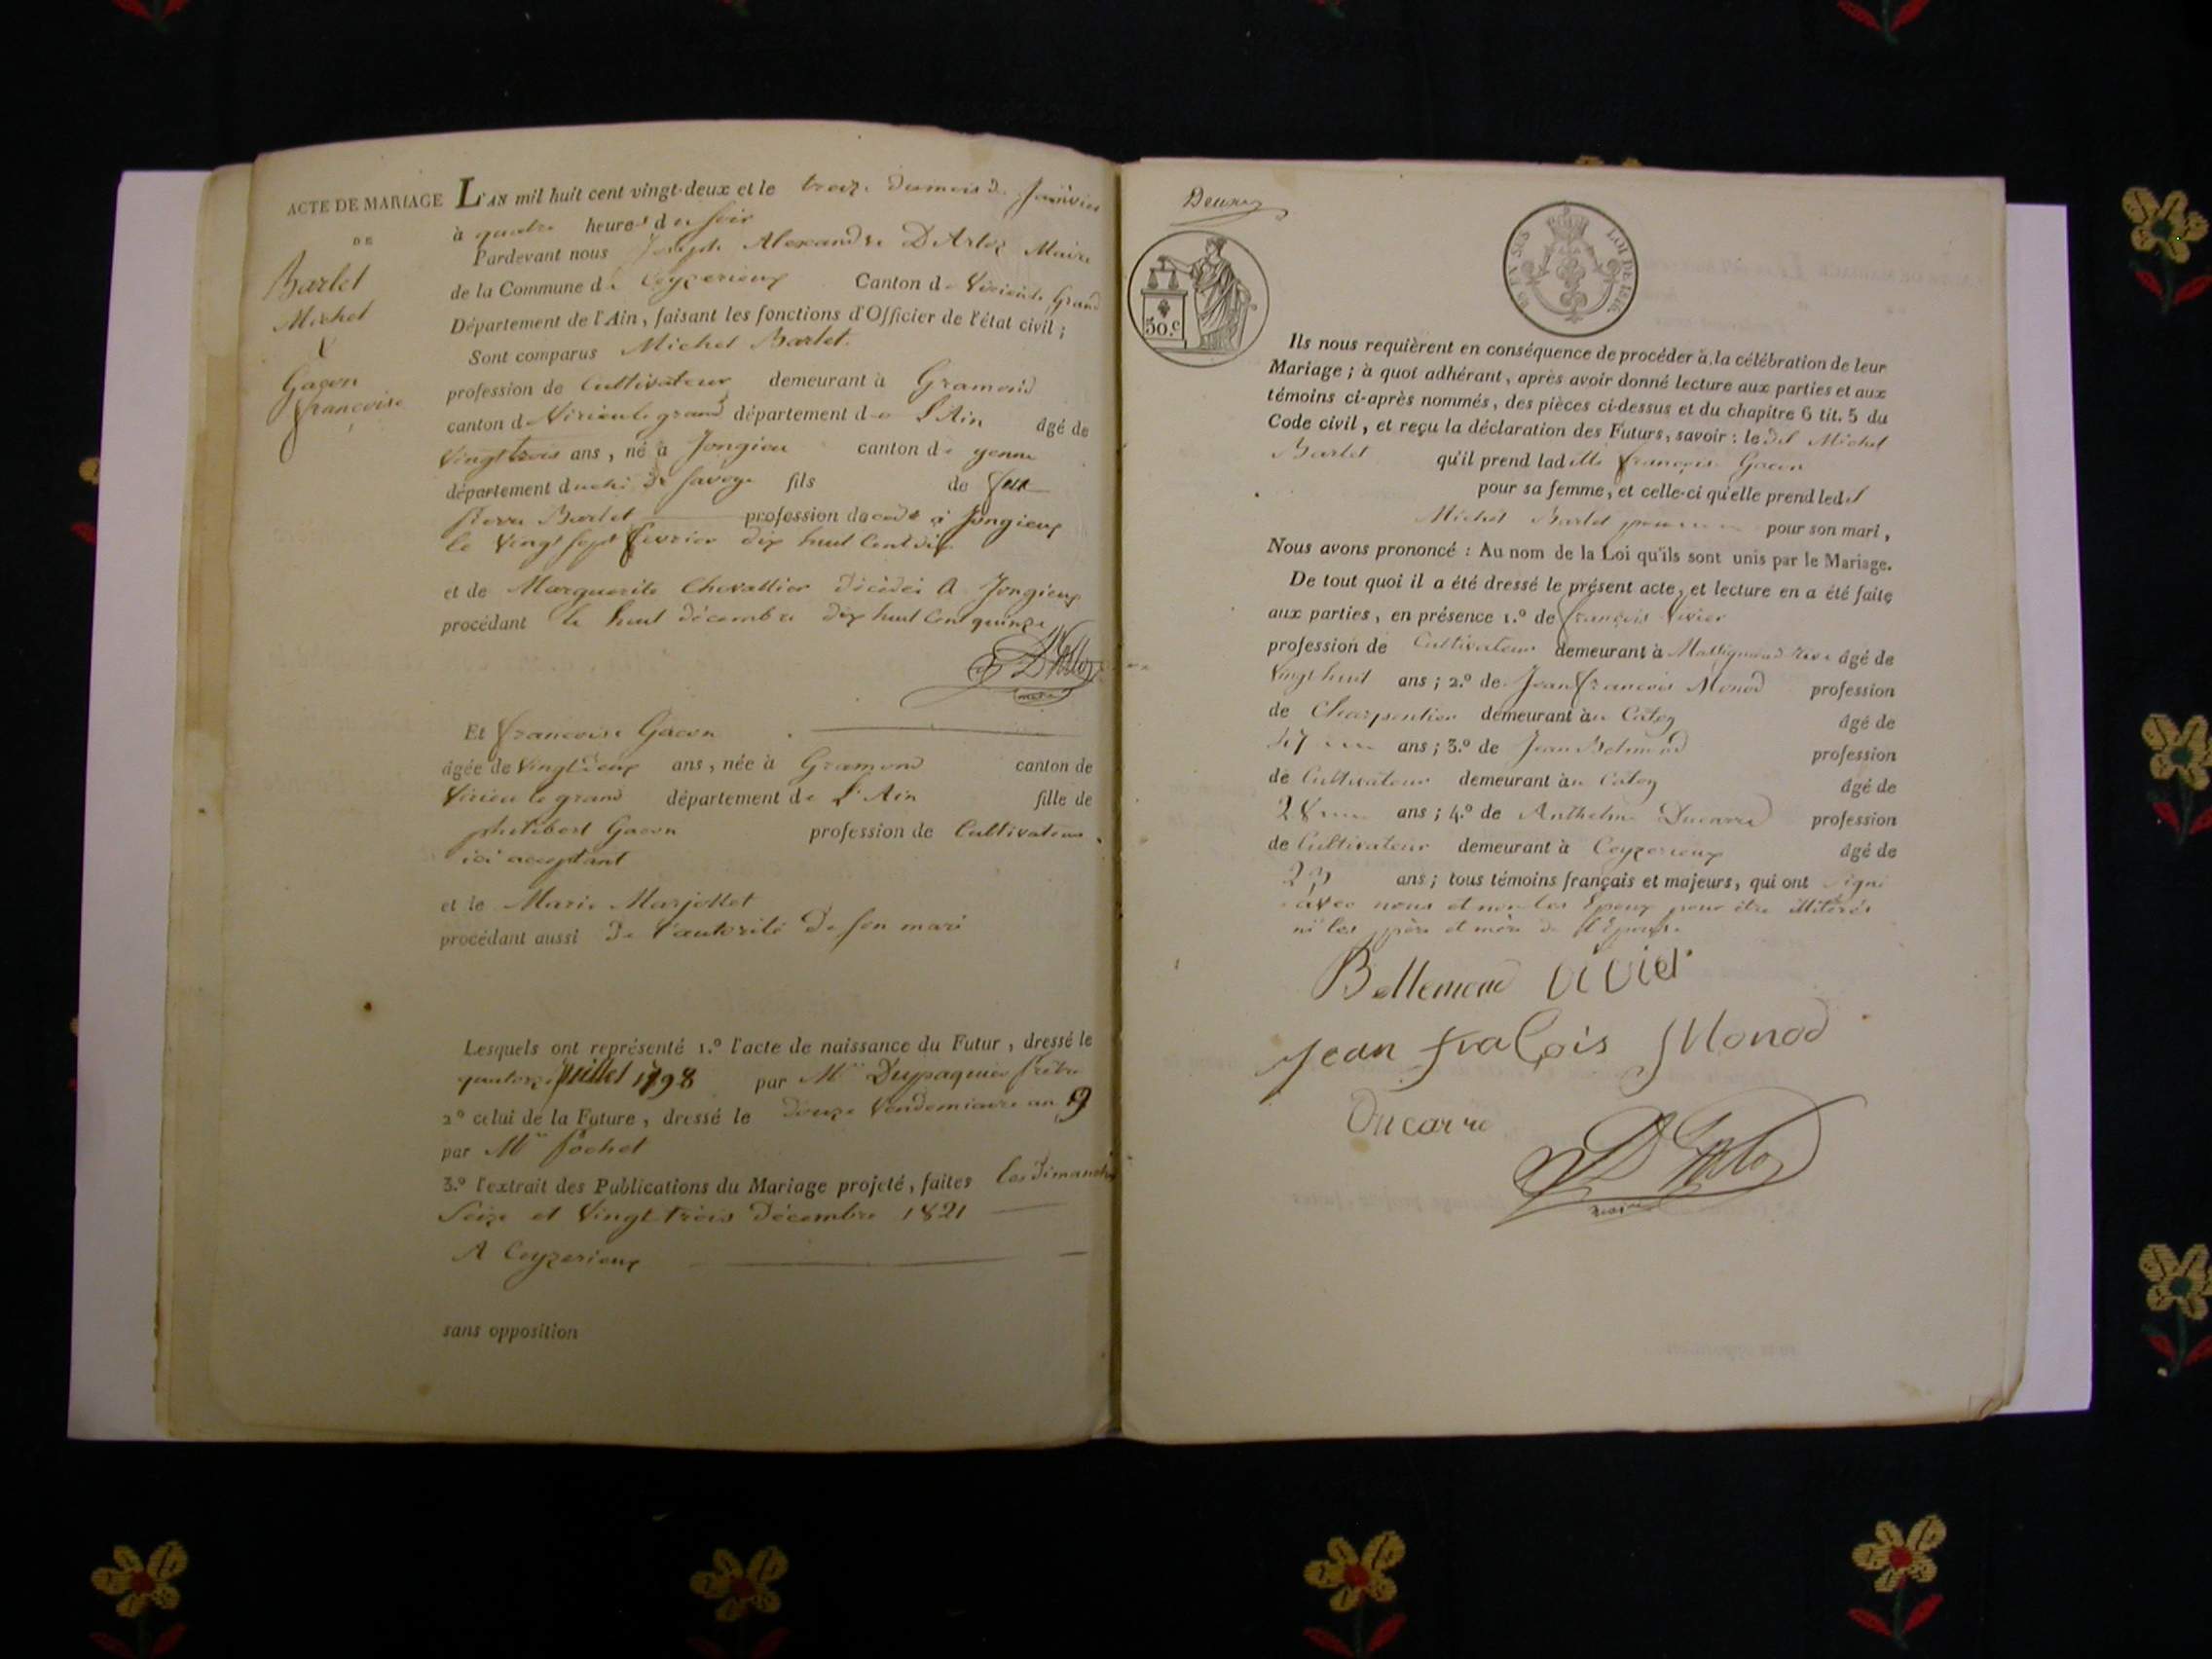 ACTE DE MARIAGE
DE
Barlet
Michel
&
Gacon
françoise
L'AN mil huit cent vingt-deux et le treize du mois de Janvier
à quatre heures du soir
Pardevant nous Joseph Alexandre D'Arloz Maire
de la Commune de Ceyzerieux Canton de Virieu le Grand
Département de l'Ain, faisant les fonctions d'Officier de l'état civil;
Sont comparus Michel Barlet.
profession de Cultivateur demeurant à Gramond
canton de Virieu le grand département de L'Ain âgé de
Vingt trois ans, né à Jongieu canton de yenne
département duché de Savoye fils de feu
pierre Barlet profession décédé à Jongieux
le Vingt sept fevrier dix huit Cent dix
et de Marguerite Chevallier décédée A Jongieux
procédant le huit décembre dix huit Cent quinze
Et françoise Gacon
âgée de Vingt deux ans, née à Gramond canton de
Virieu le grand département de L'Ain fille de
philibert Gacon profession de Cultivateur
ici acceptant
et le Marie Marjollet
procédant aussi De l'autorité De son mari
Lesquels ont représenté 1.º l'acte de naissance du Futur, dressé le
quatorze Juillet 1798 par Mr Dupaquier prêtre
2º celui de la Future, dressé le Douze Vendemiaire an 9
par Mr Pochet
3.º l'extrait des Publications du Mariage projeté, faites les Dimanches
Seize et Vingt trois Décembre 1821
A Ceyzerieux
sans opposition
Deux
50.c
LOI DE 1816
Ils nous requièrent en conséquence de procéder à la célébration de leur
Mariage; à quoi adhérant, après avoir donné lecture aux parties et aux
témoins ci-après nommés, des pièces ci-dessus et du chapitre 6 tit. 5 du
Code civil, et reçu la déclaration des Futurs, savoir: le dit Michel
Barlet qu'il prend ladite françoise Gacon
pour sa femme, et celle-ci qu'elle prend ledit
Michel Barlet pour son mari,
Nous avons prononcé: Au nom de la Loi qu'ils sont unis par le Mariage.
De tout quoi il a été dressé le présent acte, et lecture en a été faite
aux parties, en présence 1.º de françois Vivier
profession de Cultivateur demeurant à âgé de
Vingt huit ans; 2.º de Jean françois Monod profession
de Charpentier demeurant à âgé de
47 ans; 3.º de Jean Belmond profession
de Cultivateur demeurant à âgé de
28 ans; 4.º de Anthelme Ducarre profession
de Cultivateur demeurant à Ceyzerieux âgé de
ans; tous témoins français et majeurs, qui ont signé
avec nous et non les Epoux pour être illiterés
ni les père et mère de l'Epouse
Bellemond Vivier
Jean fraçois Monod
Ducarre